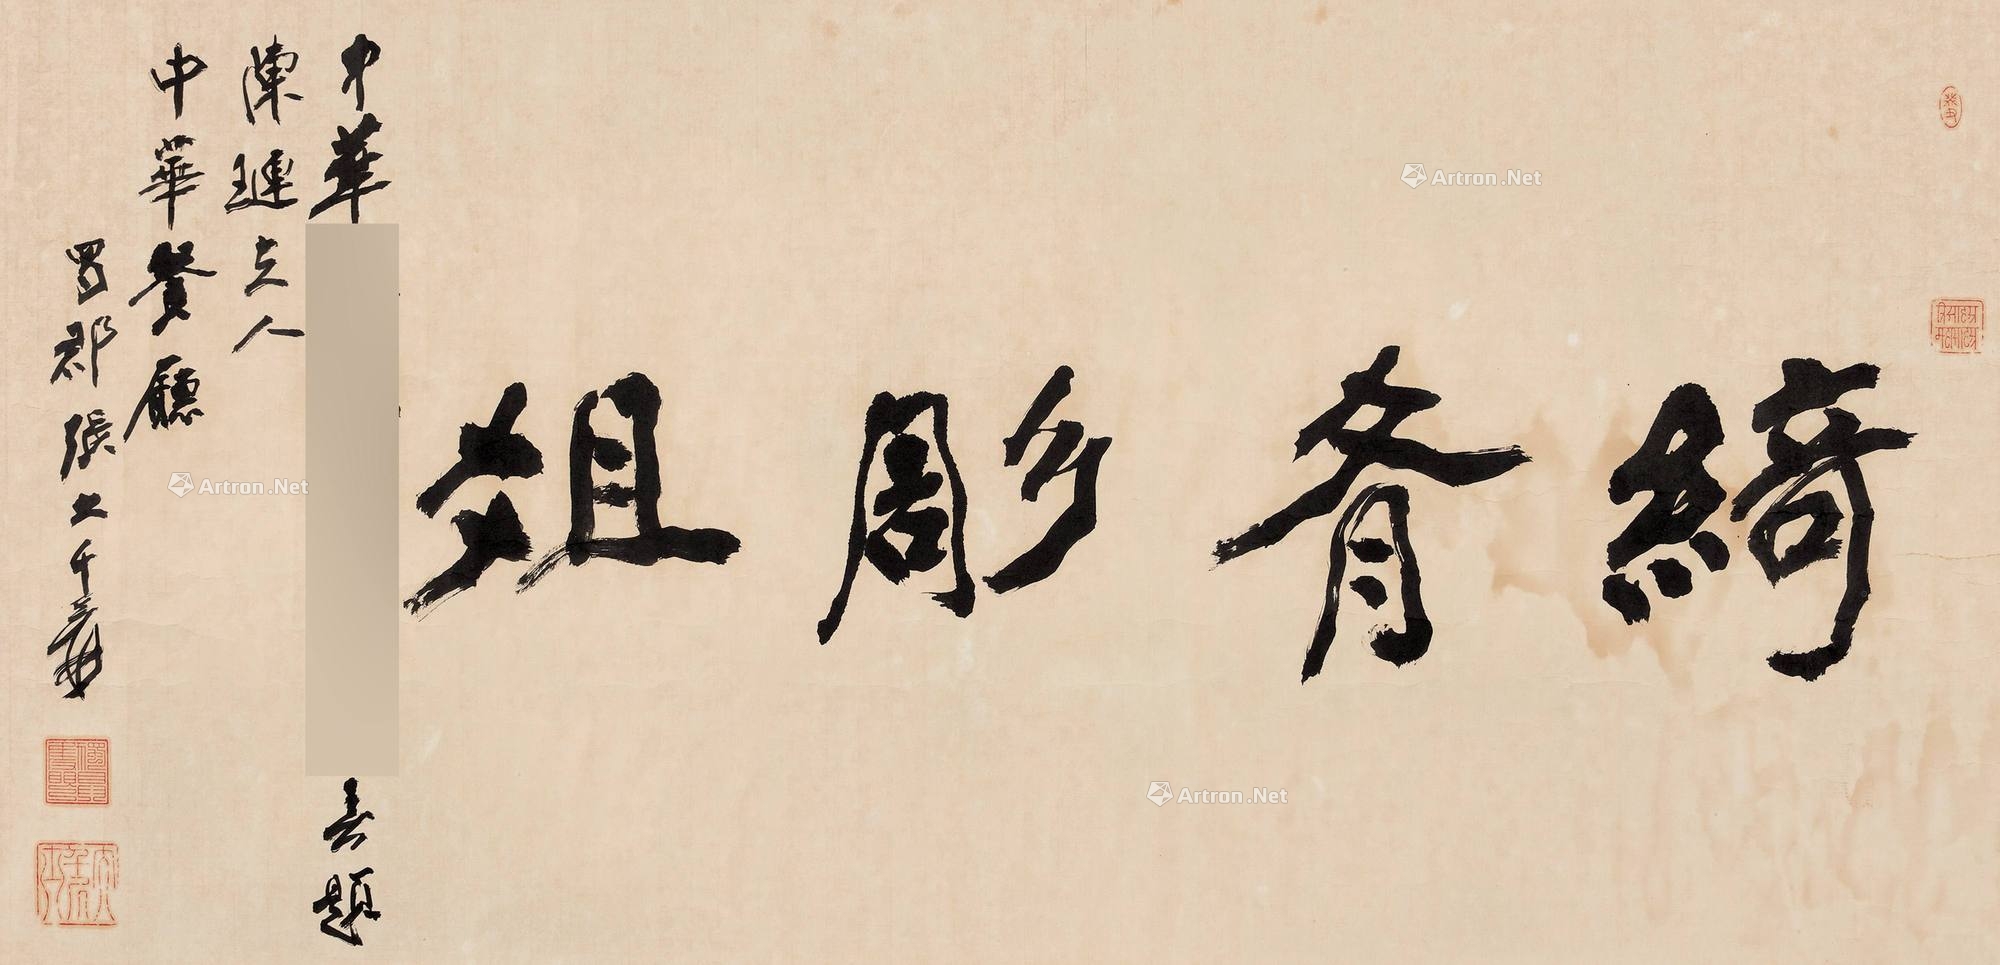 綺肴彫俎
中華
去題
陳璉夫人
中華餐廳
蜀郡張大千爰
Artron.Net
Artron.Net
Artron.Net